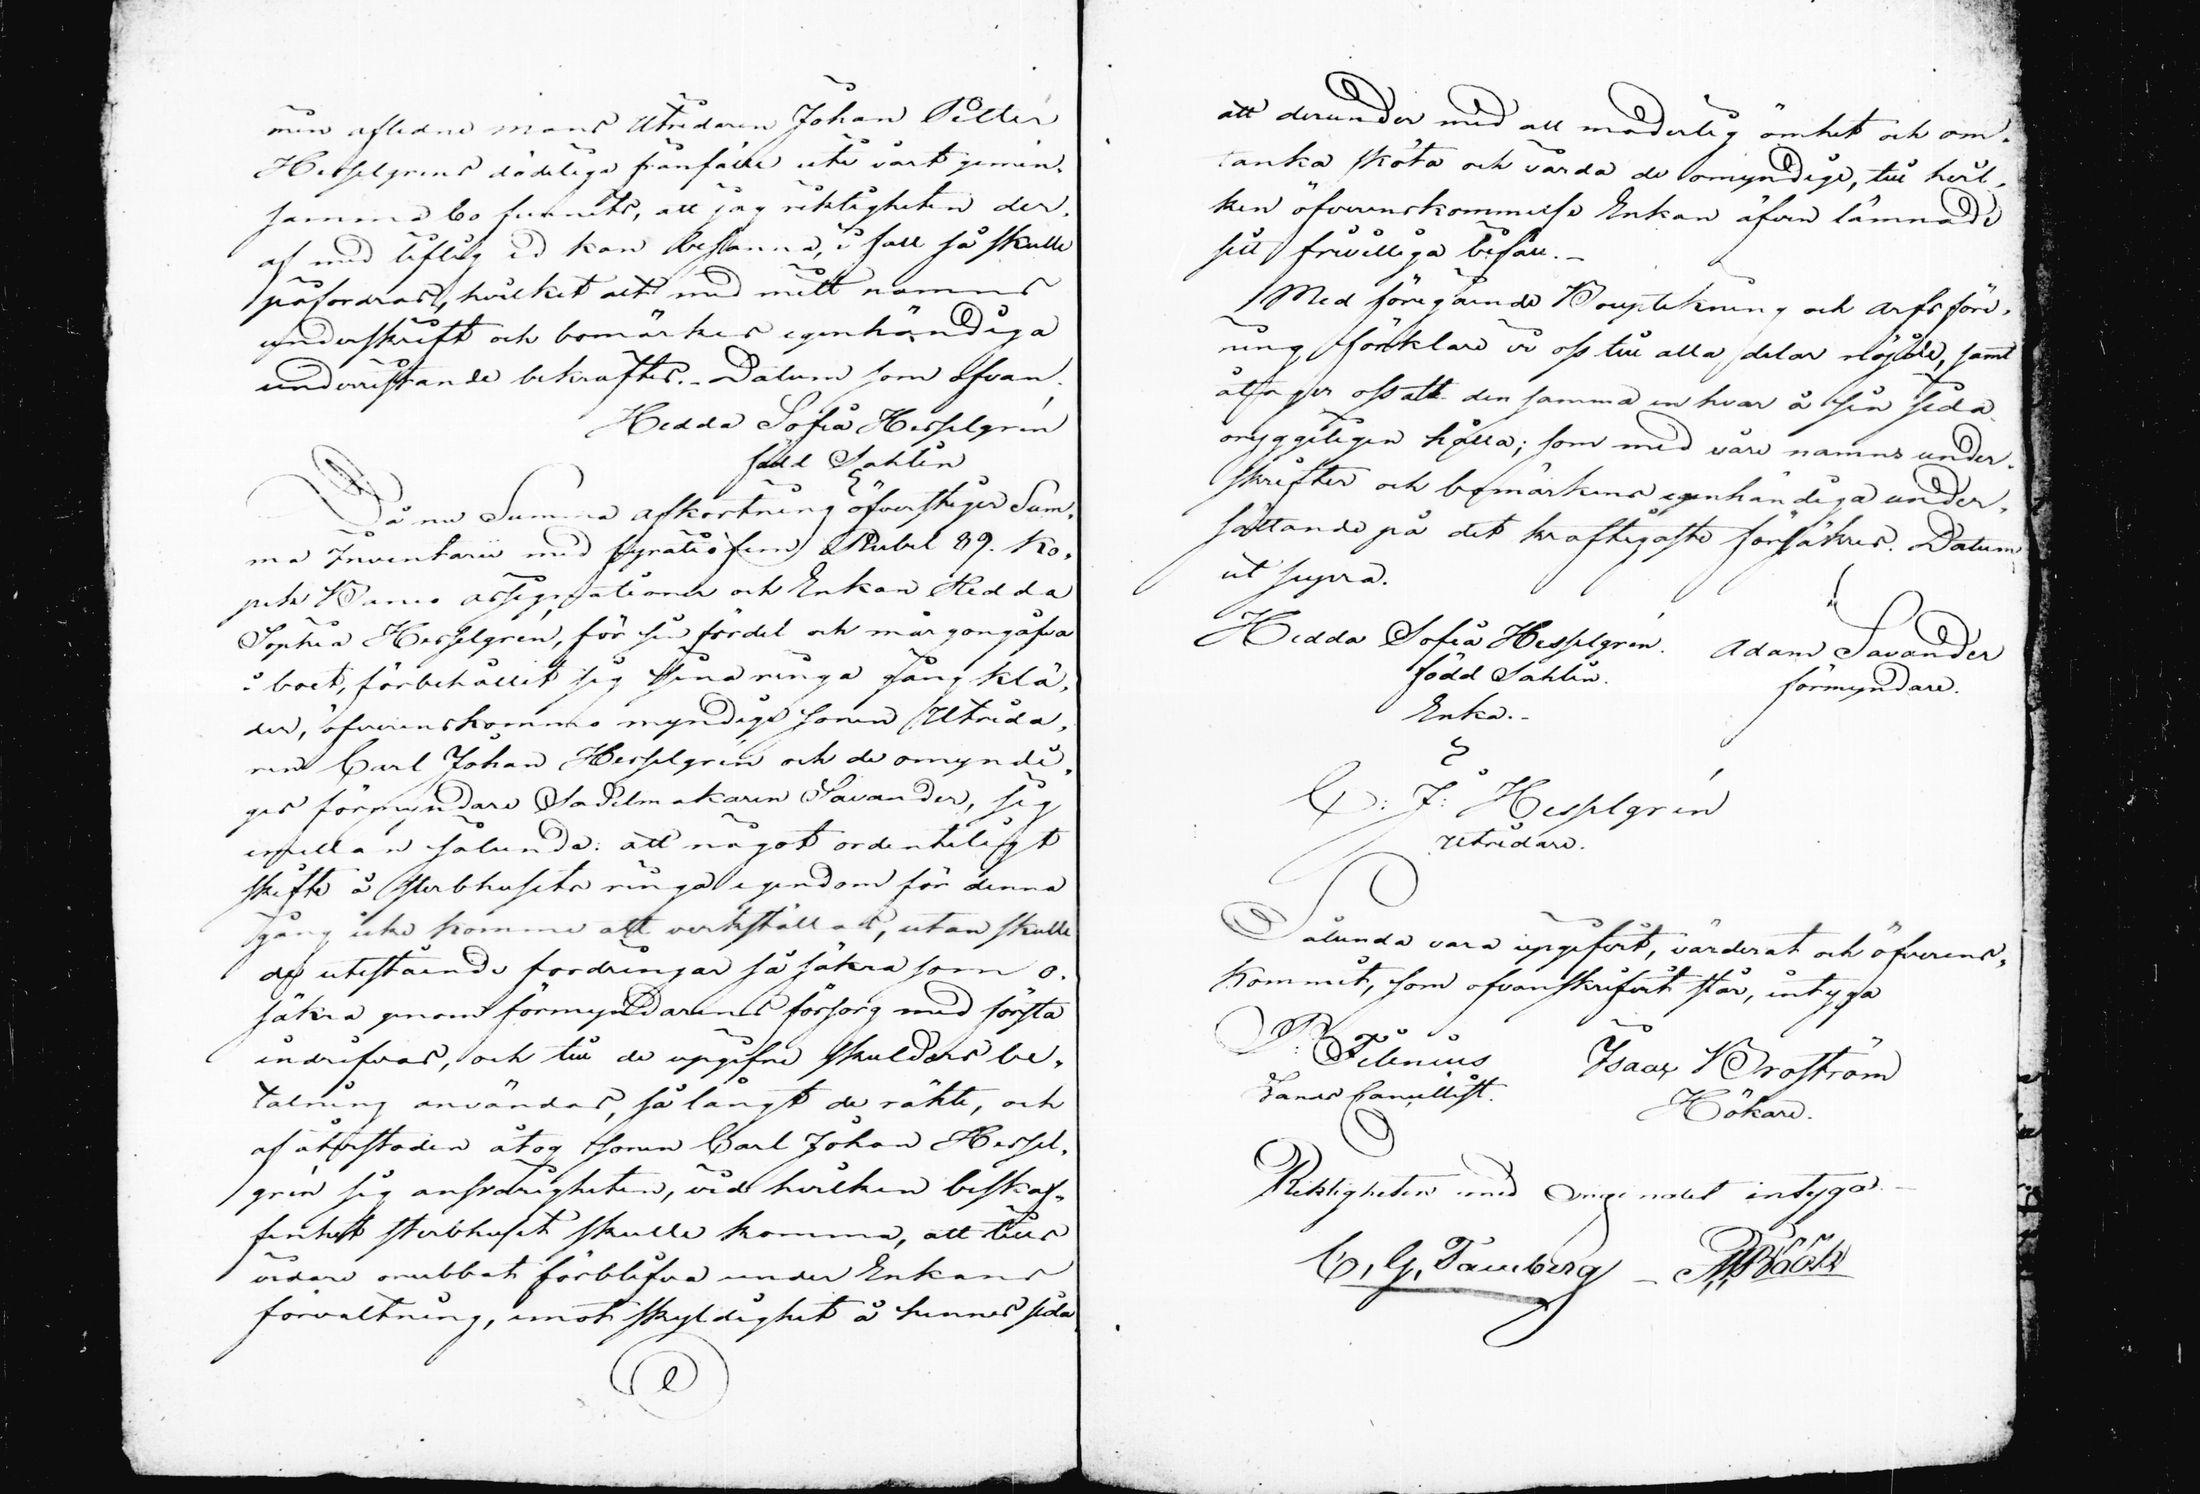 min aflidne mans Utridaren Johan Petter
Hesselgrens dödeliga frånfälle uti vårt gemen-
samma bo funnits, att jag riktigheten der-
af med liflig ed kan besanna, i fall så skulle
påfordras, hvilket allt med mitt namns
underskrift och bomärkes egenhändiga
underristande bekräftes. - Datum som ofvan.
Hedda Sofia Hesselgrén
född Sahlin
Då nu Summa afkortning öfverstiger Sum-
ma Inventarii med fyratiofem Rubel 89. Ko-
pek Banco assignationer och Enkan Hedda
Sophia Hesselgrén, för sin fördel och morgongåfva
i boet, förbehållit sig sina ringa gångklä-
der, öfverenskommo myndige sonen Utrida-
ren Carl Johan Hesselgrén och de omyndi-
ges förmyndare Sadelmakaren Savander, sig
emellan sålunda: att något ordenteligt
skifte å sterbhusets ringa egendom för denna
gång icke komme att verkställas, utan skulle
de utestående fordringar så säkra som o-
säkra genom förmyndarens försorg med första
indrifvas, och till de upgifne skulders be-
talning användas, så långt de räkte, och
af återstoden åtog sonen Carl Johan Hessel-
grén sig ansvarigheten, vid hvilken beskaf-
fenhet sterbhuset skulle komma, att tills
vidare orubbat förblifva under Enkans
förvaltning, emot skyldighet å hennes sida
att derunder med all moderlig ömhet och om-
tanka sköta och vårda de omyndige, till hvil-
ken öfverenskommelse Enkan äfven lämnade
sitt friwilliga bifall. -
Med föregående Bouptekning och arfsföre-
ning förklare vi oss till alla delar nöjde, samt
åtager oss att den samma en hvar å sin sida
oryggeligen hålla; som med våre namns under-
skrifter och bomärkens egenhändiga under-
sättande på det kraftigaste försäkres. Datum
ut supra.
Hedda Sofia Hesselgrén. Adam Savander
född Sahlin. förmyndare.
Enka. -
C: J: Hesselgrén
Utridare.
Sålunda vara upgifvit, värderat och öfverens-
kommit, som ofvanskrifvit står, intyga
P: Filenius Isaac Broström
Lands Cancellist. Hökare.
Riktigheten med originalet intyga. -
C. G. Tamberg - Bööck